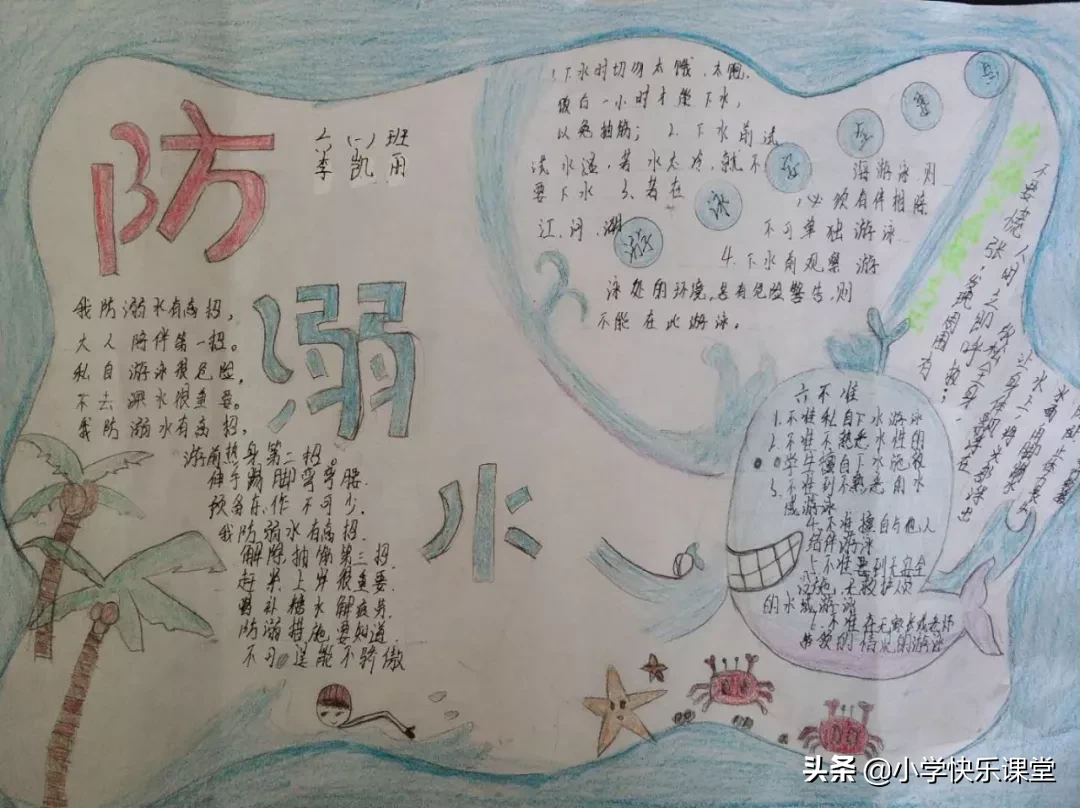 防
溺
水
(一)班
李凯雨
我防溺水有高招,
大人陪伴第一招。
私自游泳很危险,
不去深水很重要。
我防溺水有高招,
游前热身第二招。
伸手踢脚弯弯腰.
预备动作不可少.
我防弱水有高招.
解除抽筋第三招.
赶来上岸很重要.
糖水解疲劳.
防溺措施要知道.
不可逞能不骄傲
1.下水时切勿太饿、太饱.
饭后一小时才能下水,
以免抽筋; 2.下水前试
试水温,若水太冷,就不
要下水 3、若在
江、河、湖
海游泳则
必须有伴相陪
不可单独游泳
4.下水前观察游
泳处的环境,若有危险警告,则
不能在此游泳。
游泳
六不准
1.不准私自下水游泳
2.不准不熟悉水性的
学生擅自下水施救
3.不准到不熟悉的水
域游泳
4.不准擅自与他人
结伴游泳
5.不准要到无安全
设施、无救护人员
的水域游泳
6.不准在无家长或老师
带领的情况的游泳
不要慌张,发现周围有
人时立即呼救;
头条 @小学快乐课堂